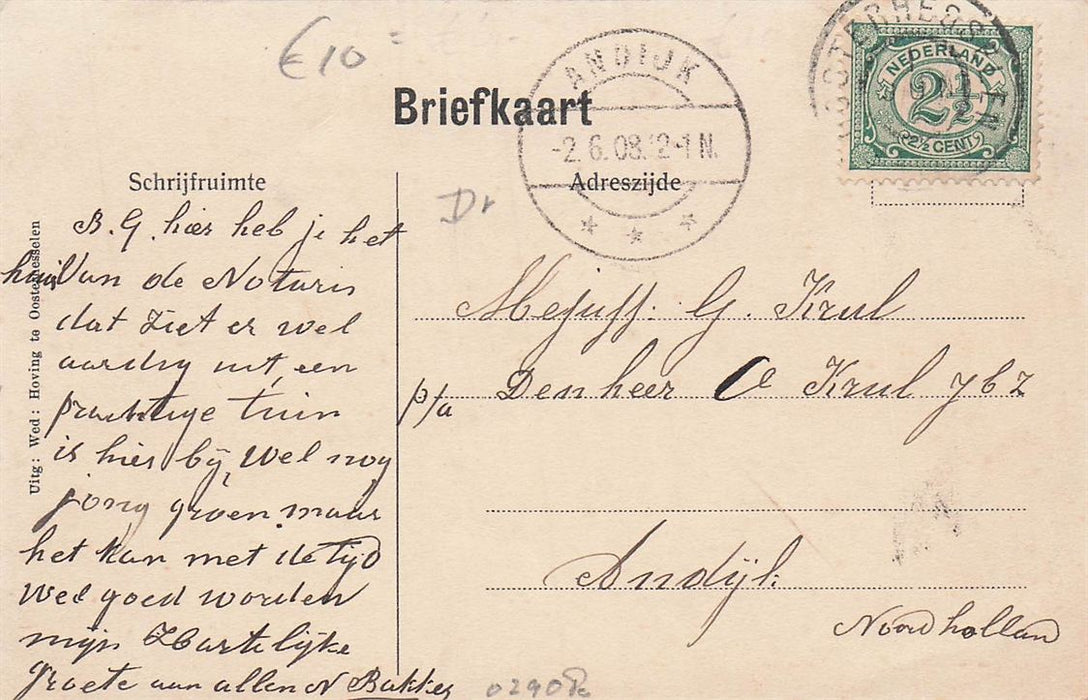 €10
Briefkaart
ANDIJK
-2.6.08.12-1 N.
NEDERLAND
2½
2½ CENT
Schrijfruimte
Adreszijde
Dr
Uitg: Wed: Hoving te Oosterhesselen
B.G. hier heb je het
huis Van de Notaris
dat ziet er wel
aardig uit, een
prachtige tuin
is hier bij, Wel nog
jong groen maar
het kan met de tijd
Wel goed worden
mijn Hartelijke
groete aan allen N Bakker
Mejuff: G. Krul
p/a Den heer C Krul Jbz
Andijk
Noordhollan